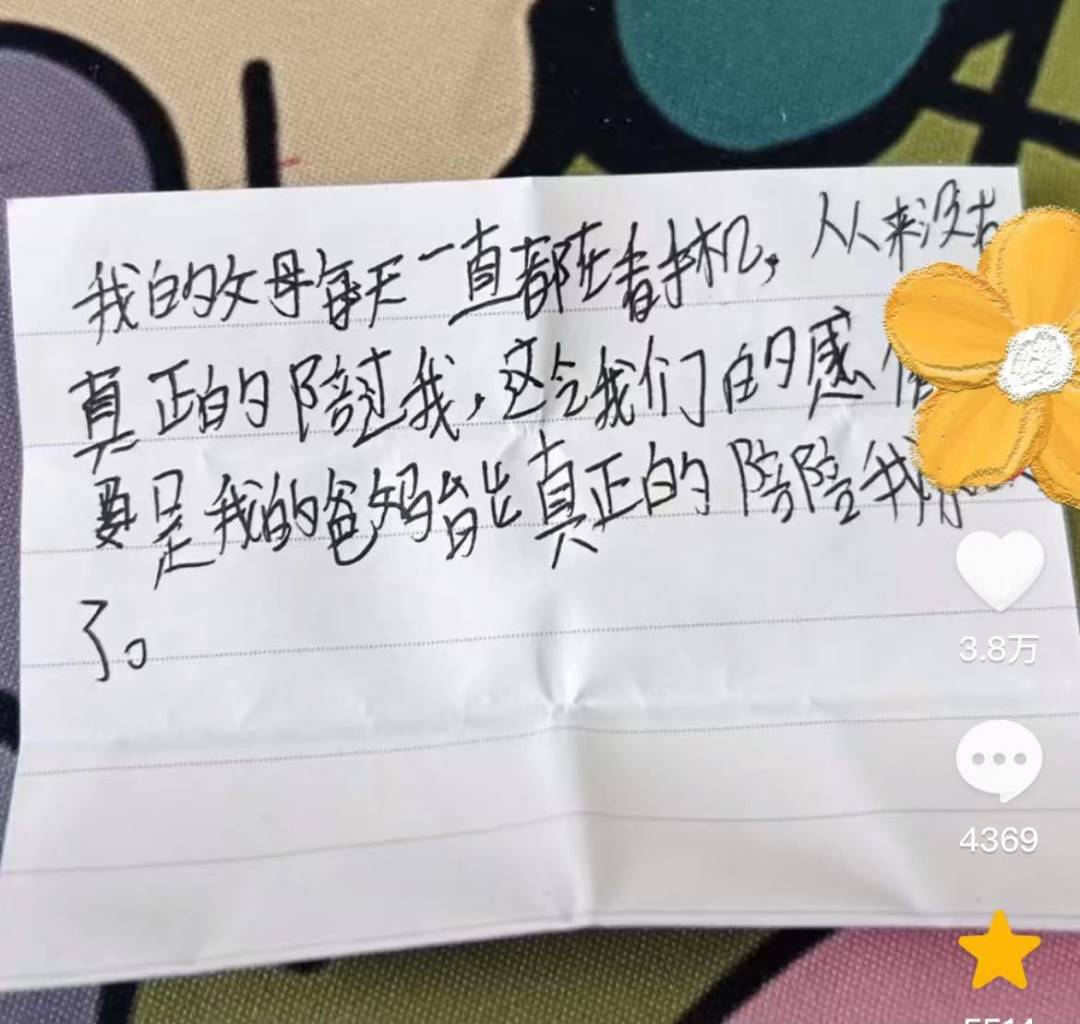 我的父母每天一直都在看手机，人从来没有
真正的陪过我，这令我们的感
要是我的爸妈能真正的陪陪我
了。
3.8万
4369